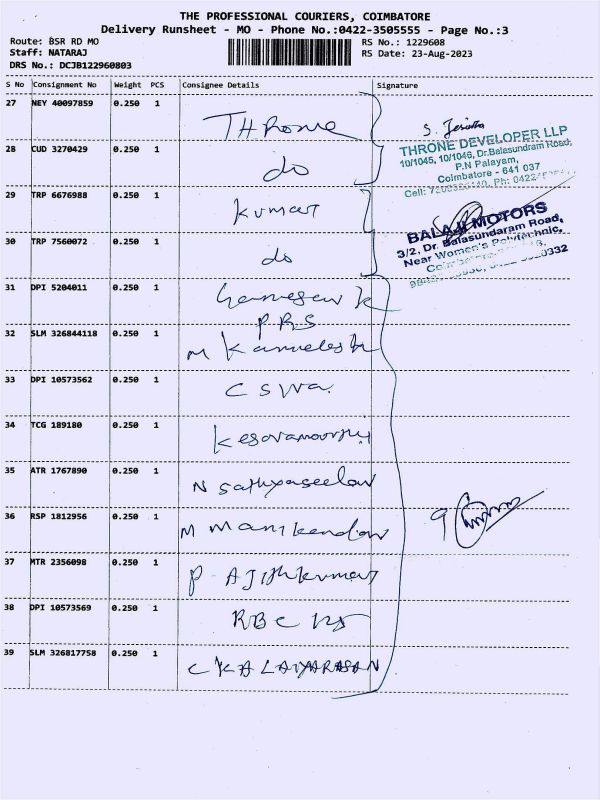 THE PROFESSIONAL COURIERS, COIMBATORE
Delivery Runsheet - MO - Phone No.:0422-3505555 - Page No.:3
Route: BSR RD MO
Staff: NATARAJ
DRS No.: DCJB122960803
RS No.: 1229608
RS Date: 23-Aug-2023
S No Consignment No Weight PCS Consignee Details Signature
27 NEY 40097859 0.250 1 THrone
28 CUD 3270429 0.250 1 do
29 TRP 6676988 0.250 1 Kumar
30 TRP 7560072 0.250 1 do
31 DPI 5204011 0.250 1 Ganesan K
PRS
32 SLM 326844118 0.250 1 M Kamalesh
33 DPI 10573562 0.250 1 C S Wa
34 TCG 189180 0.250 1 Kesavamoorthy
35 ATR 1767890 0.250 1 N Sathyaseelan
36 RSP 1812956 0.250 1 M Manikandan
37 MTR 2356098 0.250 1 P AJithkumar
38 DPI 10573569 0.250 1 RBC
39 SLM 326817758 0.250 1 C KALAIYARASAN
THRONE DEVELOPER LLP
10/1045, 10/1046, Dr.Balasundram Road,
P.N Palayam,
Coimbatore - 641 037
Cell:
BALAJI MOTORS
3/2, Dr. Balasundaram Road,
Near Women's Polytechnic,
9